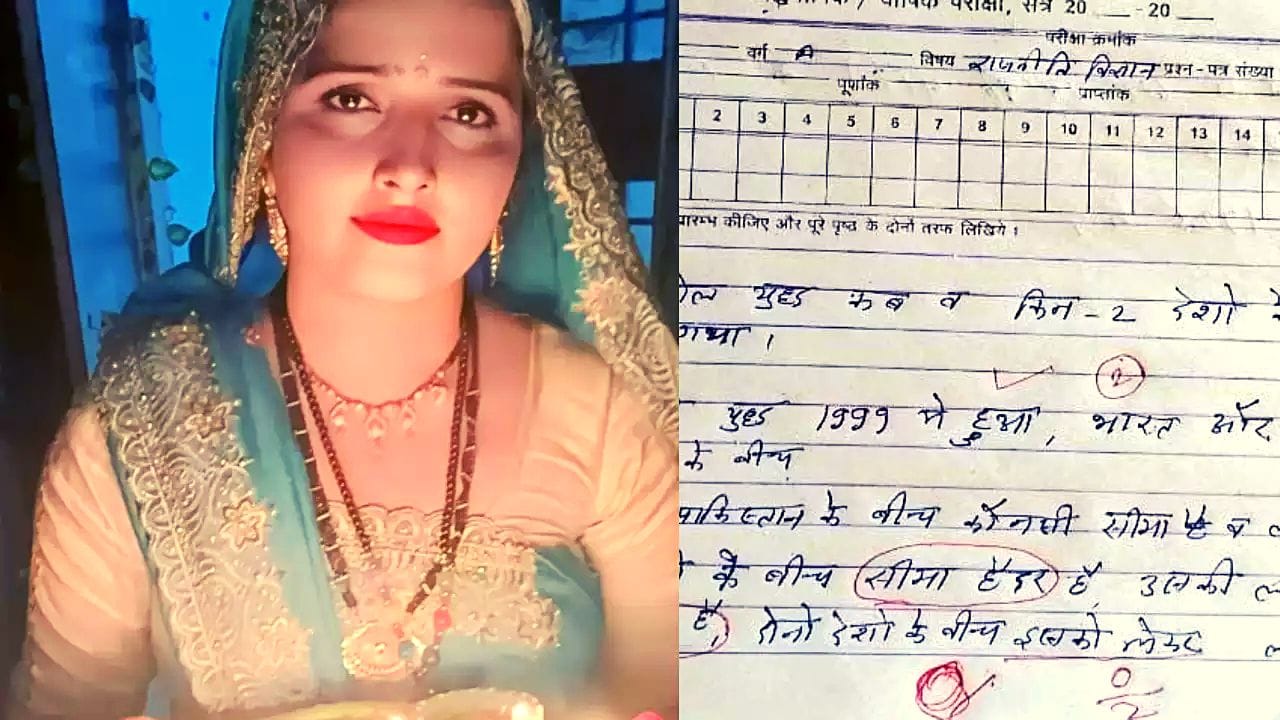 वार्षिक परीक्षा, सत्र 20 ___ -20 ___
परीक्षा क्रमांक
वर्ग A विषय राजनीति विज्ञान प्रश्न-पत्र संख्या
पूर्णांक प्राप्तांक
2 3 4 5 6 7 8 9 10 11 12 13 14
प्रारम्भ कीजिए और पूरे पृष्ठ के दोनों तरफ लिखिये।
युद्ध कब व किन-2 देशो के
गया।
2
युद्ध 1999 मे हुआ, भारत और
के बीच
पाकिस्तान के बीच कौनसी सीमा है व
के बीच सीमा हैदर है, उसकी
है, दोनो देशो के बीच इसको लेकर
0
2